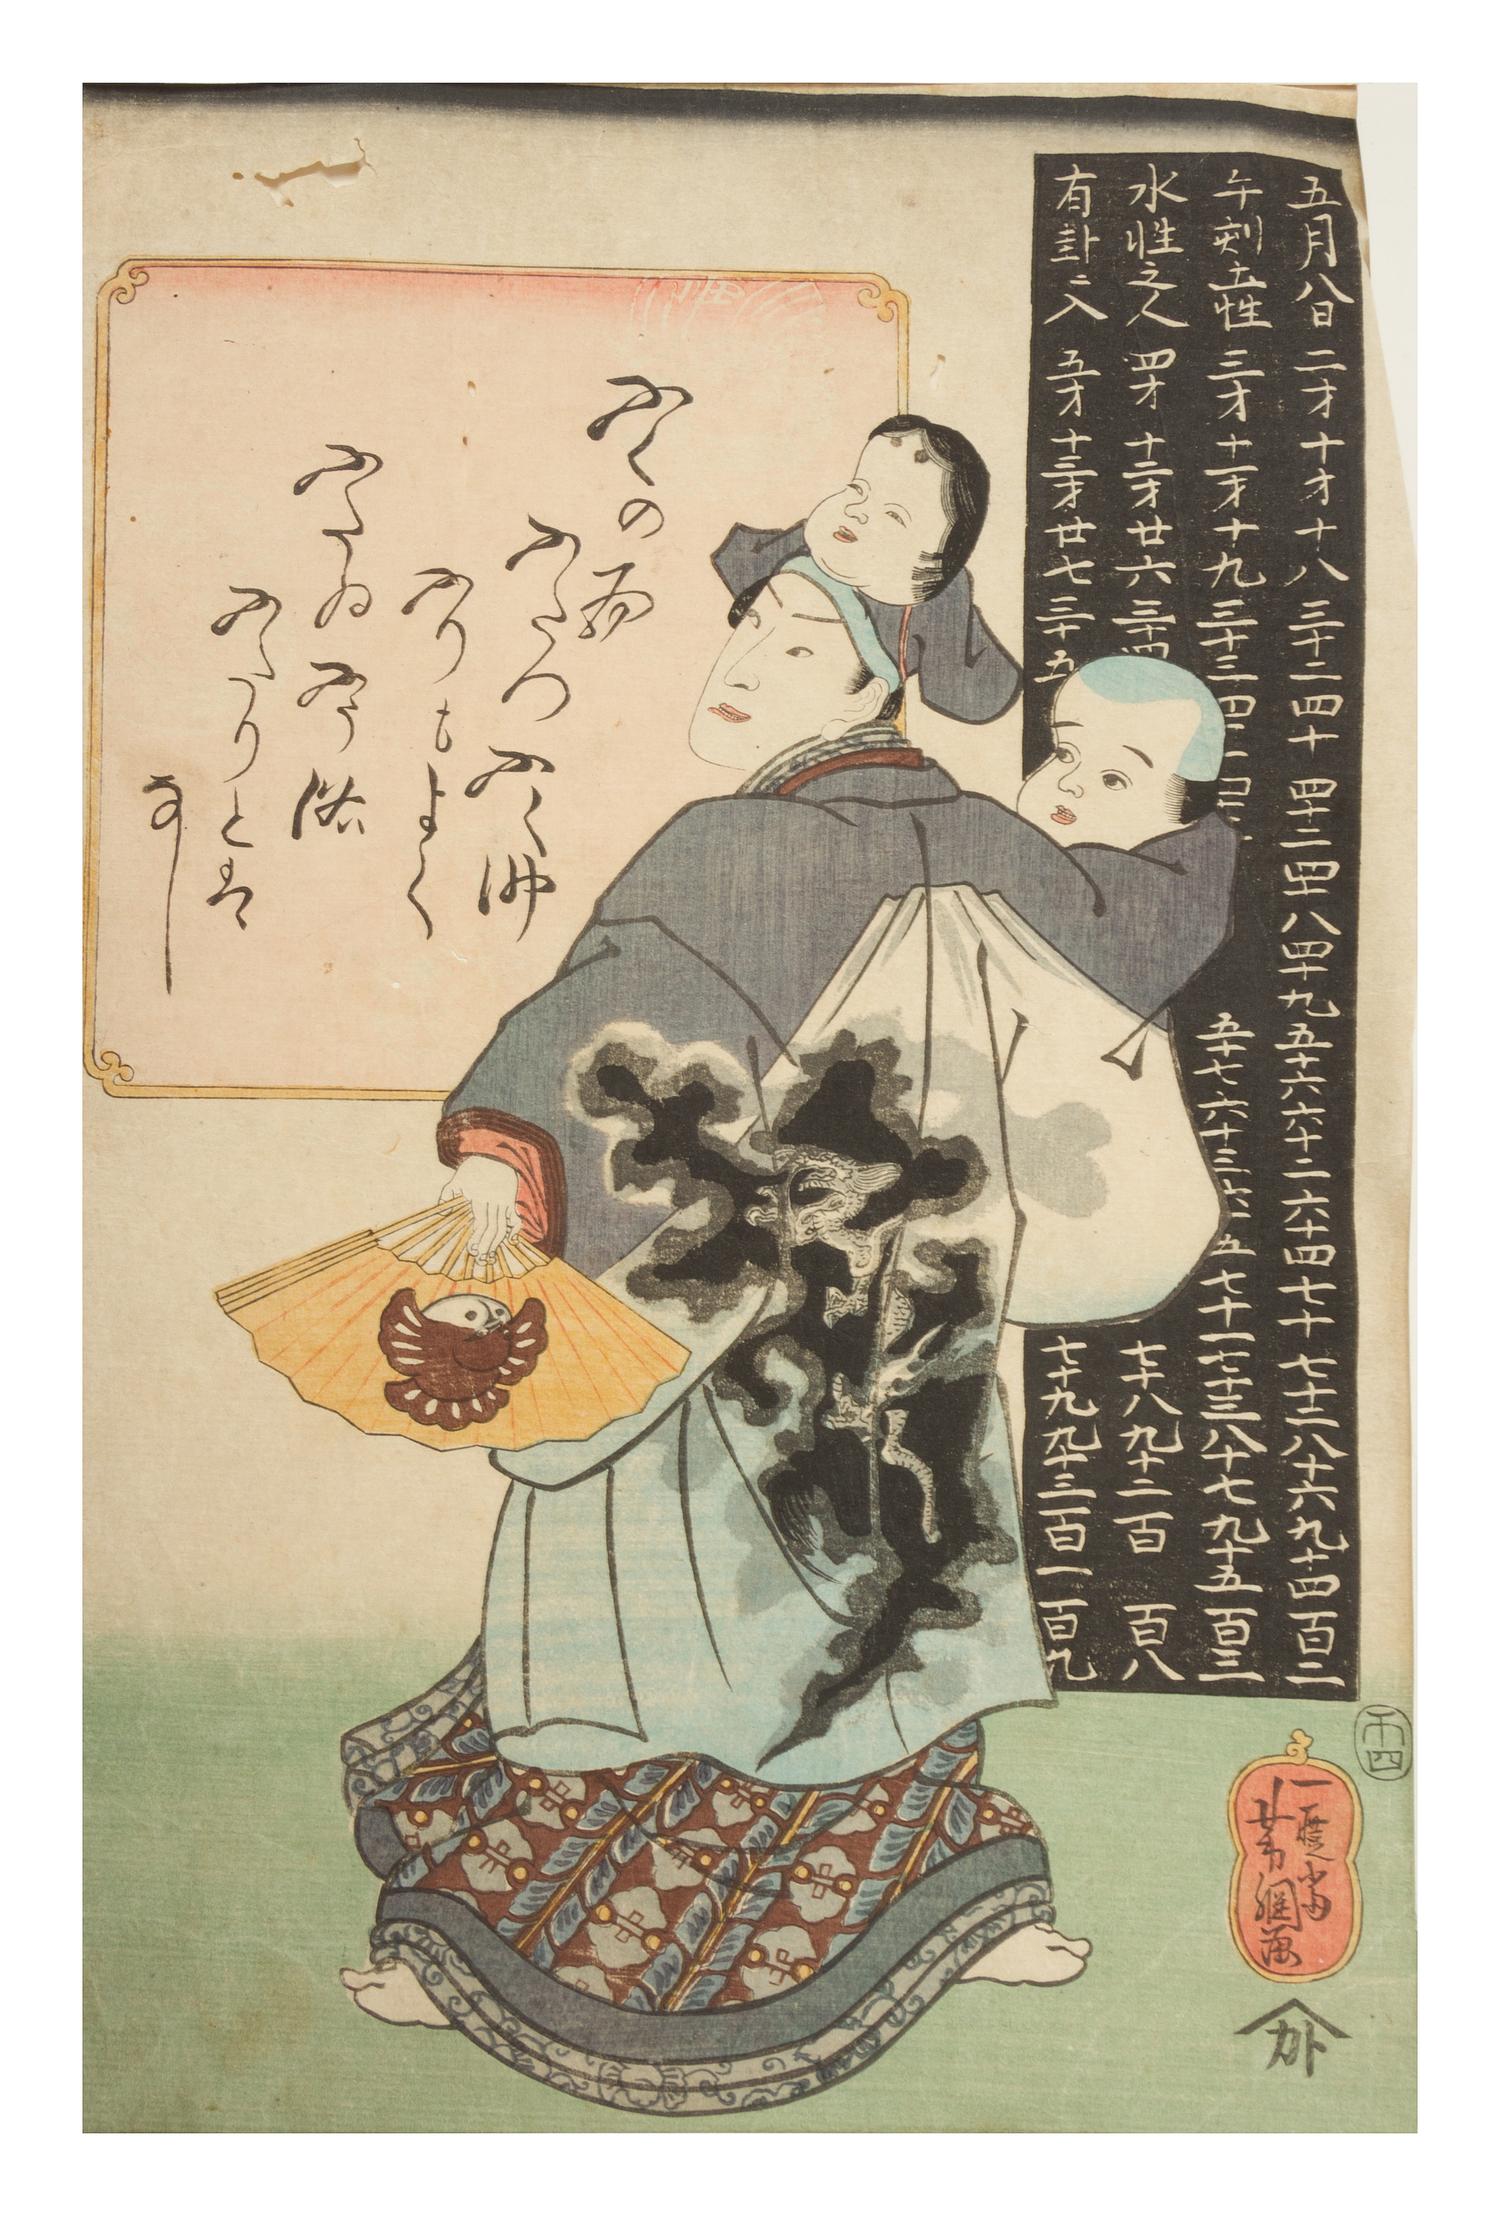 五月八日 二才 十才 十八 三十二 四十 四十二 四十八 四十九 五十六 六十二 六十四 七十 七十二 八十六 九十四 百二
午刻土性 三才 十一才 十九 三十三 五十七 六十三 六十五 七十一 七十三 八十七 九十五 百三
水性之人 四才 十二才 廿六 三十四 七十八 九十二 百 百八
有卦ニ入 五才 十三才 廿七 三十五 七十九 九十三 百一 百九
ふくの面
ふたつ
ふく神
ふりもよく
ふう俗
ふたりとは
なし
子四
一登斎
芳綱画
カト